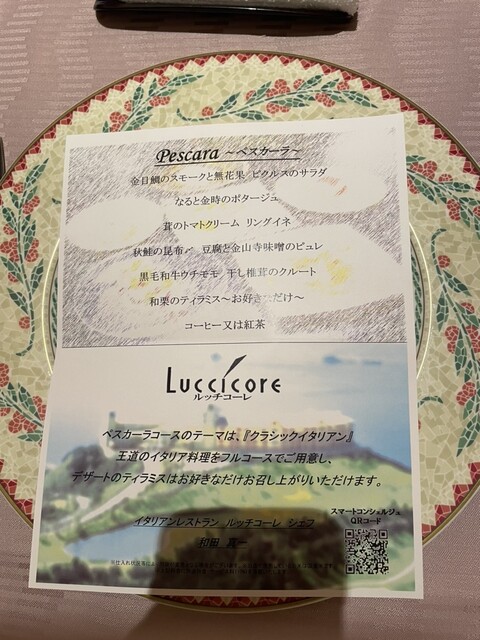 Pescara ～ペスカーラ～
金目鯛のスモークと無花果 ピクルスのサラダ
なると金時のポタージュ
茸のトマトクリーム リングイネ
秋鮭の昆布〆 豆腐と金山寺味噌のピュレ
黒毛和牛ウチモモ 干し椎茸のクルート
和栗のティラミス～お好きなだけ～
コーヒー又は紅茶
LUCCICORE
ルッチコーレ
ペスカーラコースのテーマは、『クラシックイタリアン』
王道のイタリア料理をフルコースでご用意し、
デザートのティラミスはお好きなだけお召し上がりいただけます。
スマートコンシェルジュ
QRコード
イタリアンレストラン ルッチコーレ シェフ
和田 真一